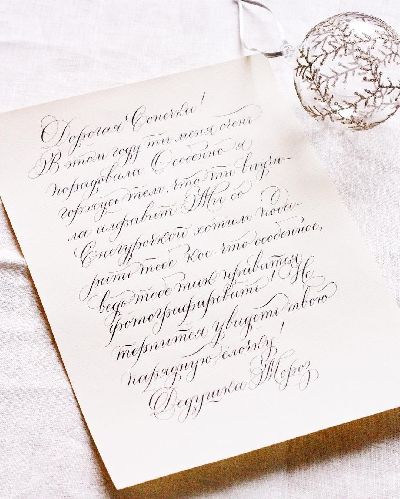 Дорогая Сонечка!
В этом году ты меня очень
порадовала. Особенно я
горжусь тем, что ты выучи-
ла алфавит. Мы со
Снегурочкой хотим пода-
рить тебе кое-что особенное,
ведь тебе так нравится
фотографировать! Не
терпится увидеть твою
нарядную ёлочку!
Дедушка Мороз